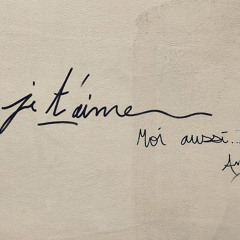 je t'aime
Moi aussi...